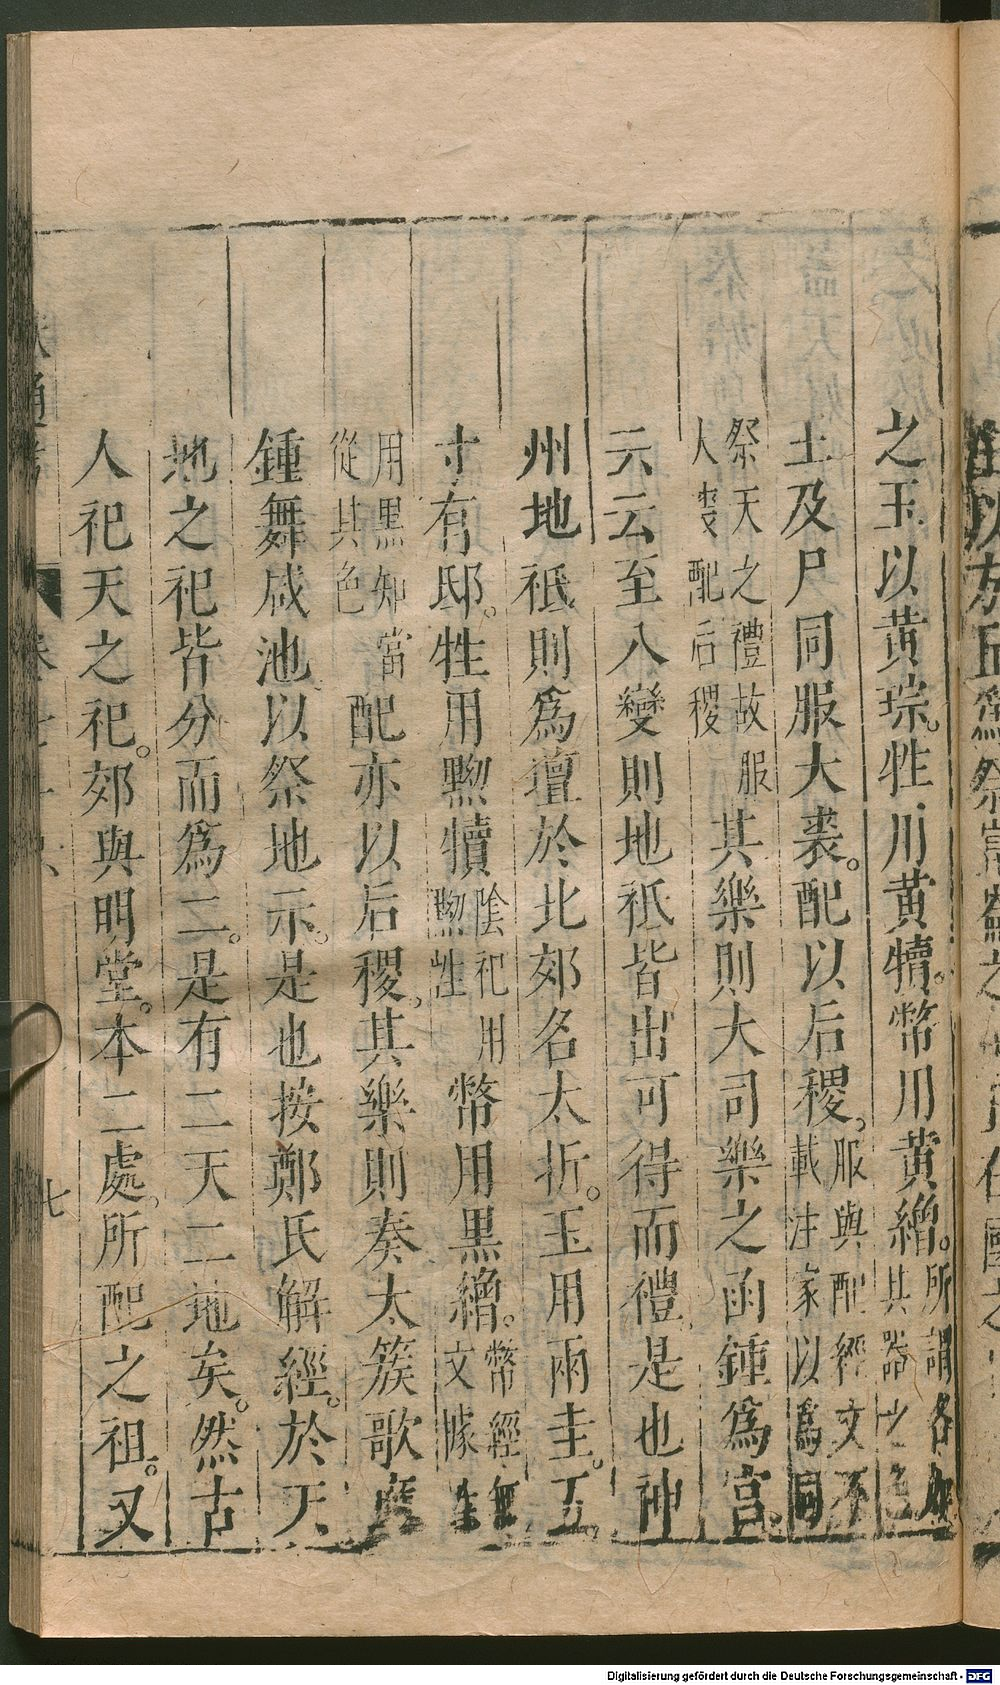 之玉以黃琮。牲用黃犢。幣用黃繒。所謂各如其器之色
王及尸同服大裘。配以后稷。服與配經文不載注家以爲同
祭天之禮故服人裘配后稷其樂則大司樂之函鍾爲宮
云云至八變則地祇皆出可得而禮是也神
州地祇則爲壇於北郊名太折。玉用兩圭。五
寸有邸。牲用黝犢陰祀用黝牲幣用黑繒。幣經無文據牲
用黑知當從其色配亦以后稷。其樂則奏太簇歌應
鍾舞咸池以祭地示。是也按鄭氏解經。於天
地之祀皆分而爲二。是有二天二地矣。然古
人祀天之祀。郊與明堂。本二處。所配之祖。又
七
Digitalisierung gefördert durch die Deutsche Forschungsgemeinschaft - DFG